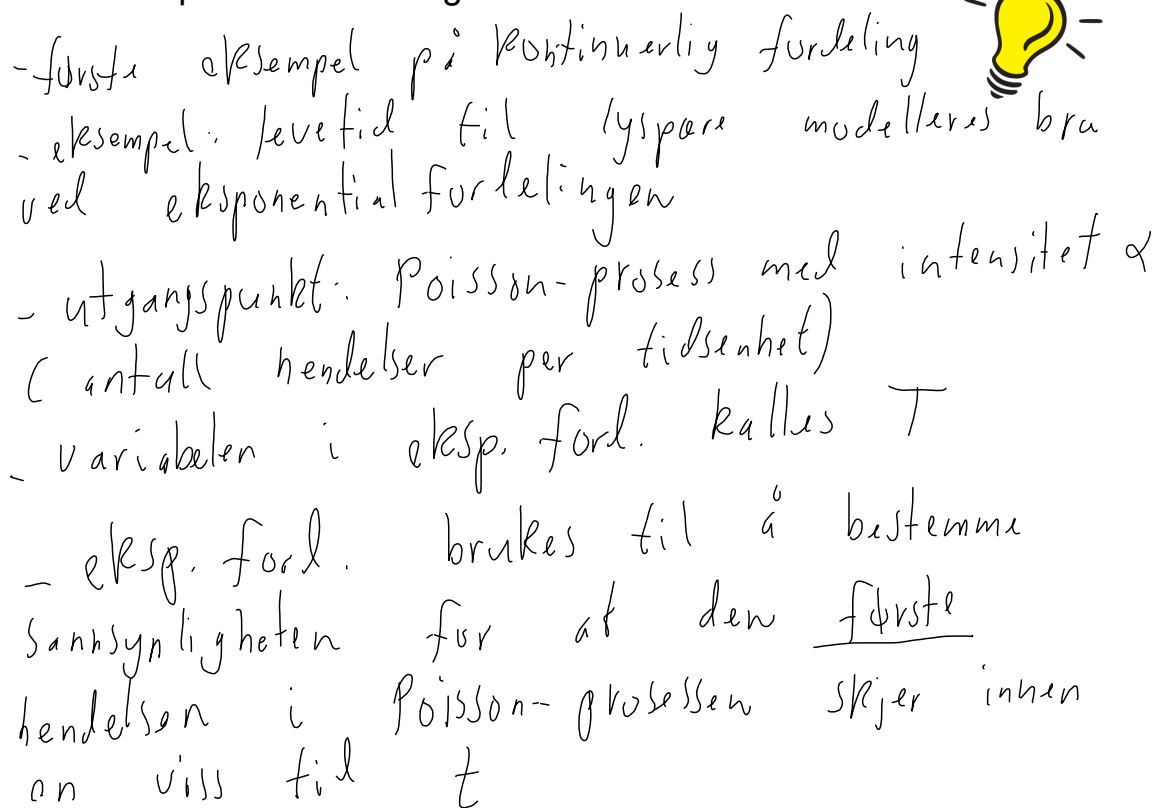 - første eksempel på kontinuerlig fordeling
- eksempel: levetid til lyspære modelleres bra
ved eksponentialfordelingen
- utgangspunkt: Poisson-prosess med intensitet α
(antall hendelser per tidsenhet)
- variabelen i eksp. ford. kalles T
- eksp. ford. brukes til å bestemme
sannsynligheten for at den første
hendelsen i Poisson-prosessen skjer innen
en viss tid t